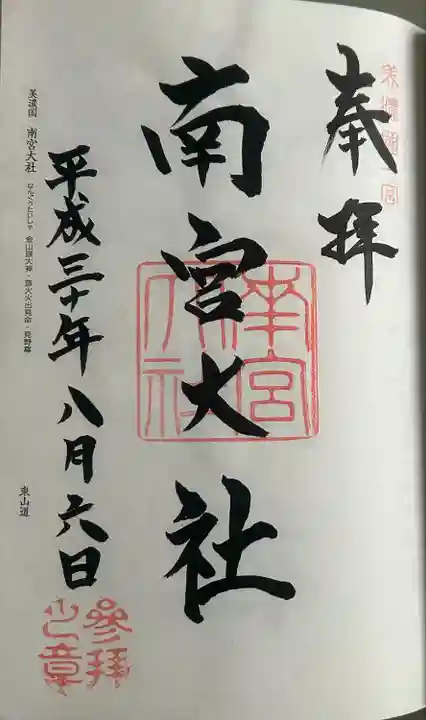 奉拝
美濃國一宮
南宮大社
南宮大社
平成三十年八月六日
参拜之章
美濃国 南宮大社 なんぐうたいしゃ 金山彦大神・彦火火出見命・見野尊
東山道